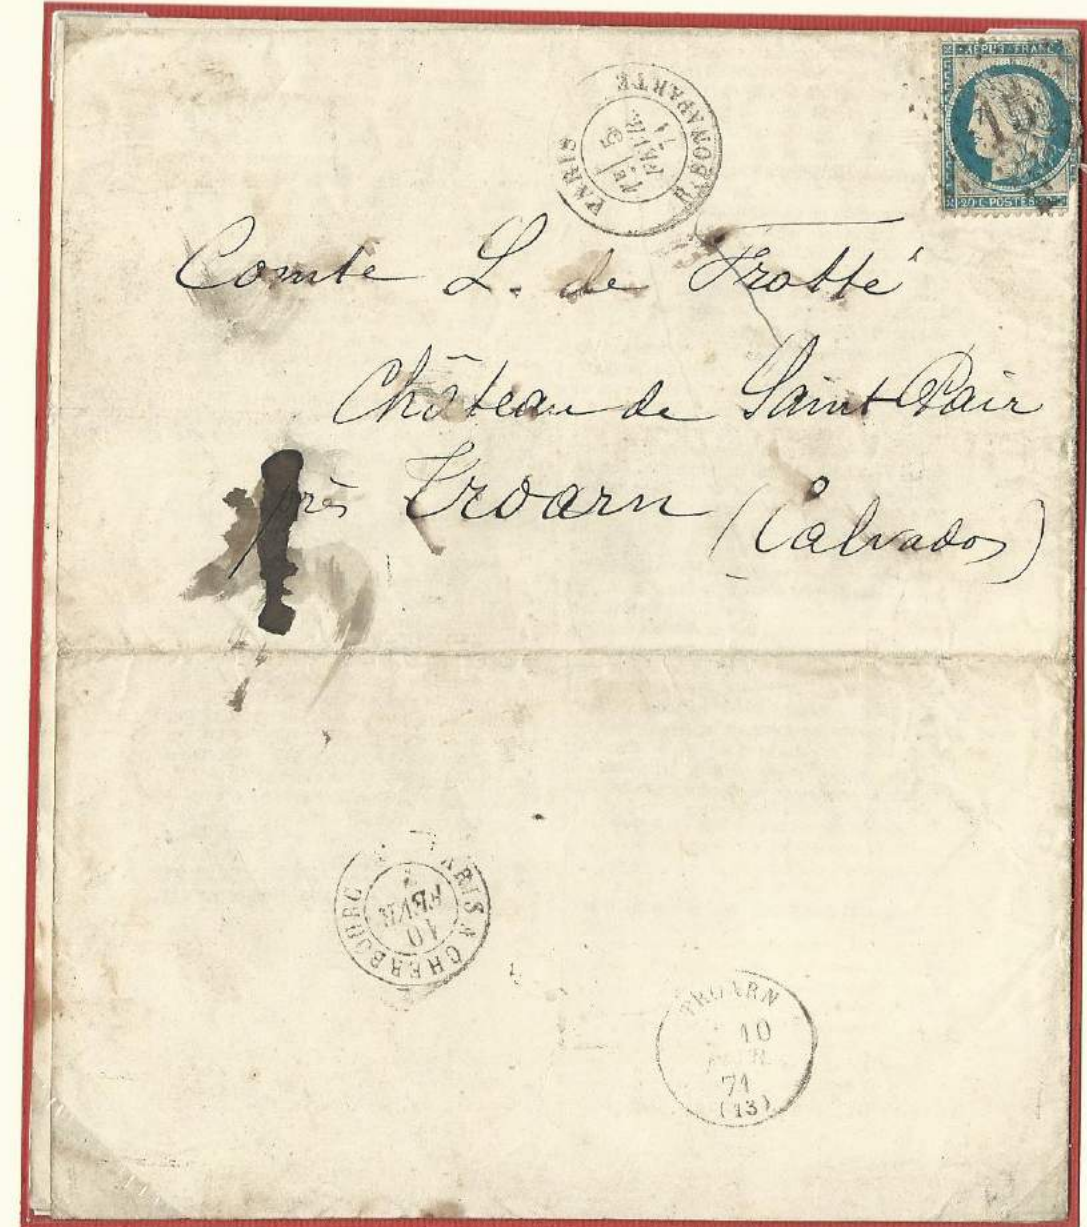 REPUB · FRANC
15
20 C · POSTES
PARIS R. BONAPARTE
1E/
5
FEVR.
71
Comte L. de Frotté
Château de Saint Pair
près Troarn (Calvados)
PARIS A CHERBOURG
10
FEVR
TROARN
10
71
(13)